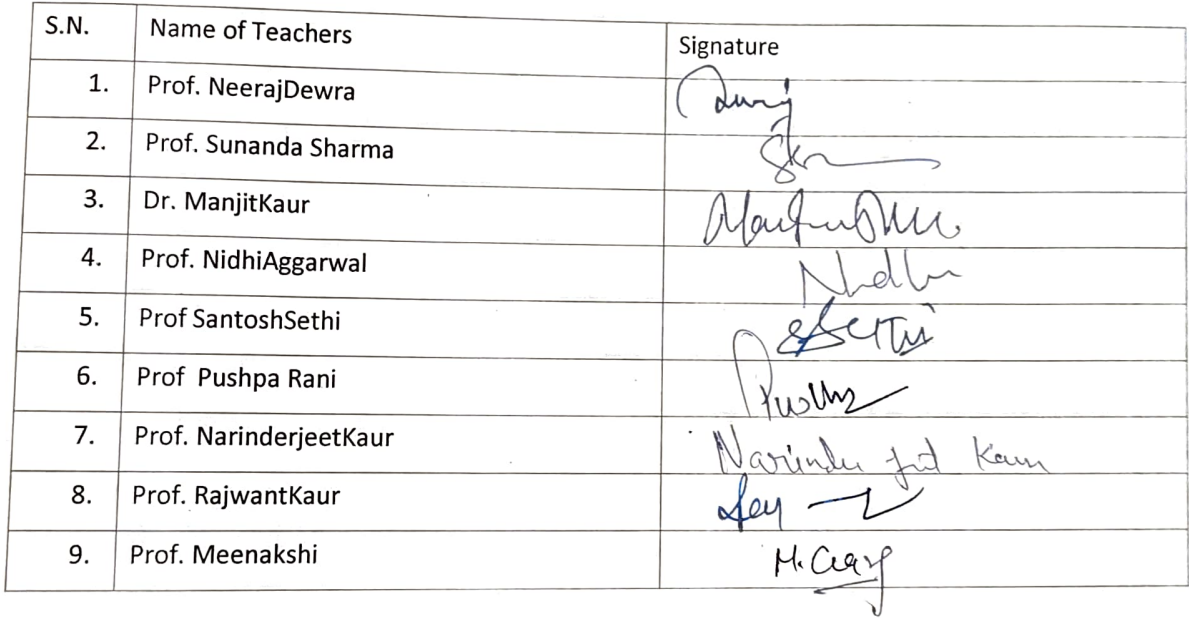 S.N. Name of Teachers Signature
1. Prof. NeerajDewra
2. Prof. Sunanda Sharma
3. Dr. ManjitKaur
4. Prof. NidhiAggarwal Nidhi
5. Prof SantoshSethi SSethi
6. Prof Pushpa Rani
7. Prof. NarinderjeetKaur Narinder jit Kaur
8. Prof. RajwantKaur
9. Prof. Meenakshi M. Garg